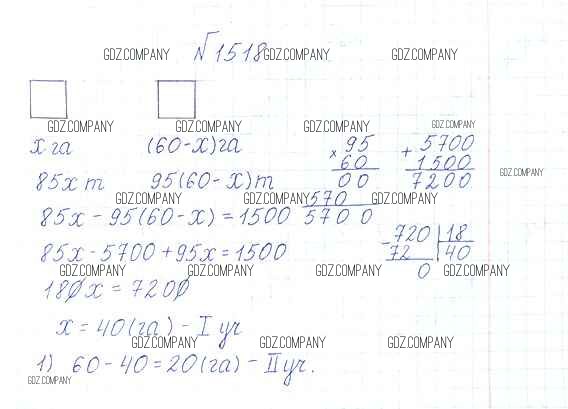 №1518
GDZ.COMPANY GDZ.COMPANY GDZ.COMPANY
GDZ.COMPANY GDZ.COMPANY GDZ.COMPANY
x га (60-x)га
85x т 95(60-x)т
GDZ.COMPANY
GDZ.COMPANY GDZ.COMPANY GDZ.COMPANY
85x - 95(60-x) = 1500
85x - 5700 + 95x = 1500
GDZ.COMPANY GDZ.COMPANY GDZ.COMPANY GDZ.COMPANY
180x = 7200
x = 40(га) - I уч
GDZ.COMPANY GDZ.COMPANY GDZ.COMPANY
1) 60 - 40 = 20(га) - II уч.
GDZ.COMPANY
× 95
60
00
570
5700
+ 5700
1500
7200
- 720 | 18
72 | 40
0